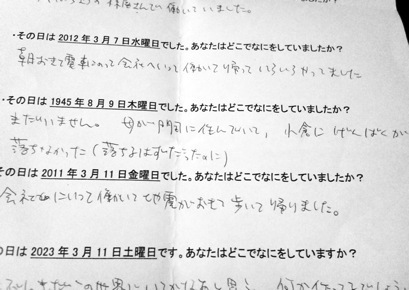 さんで働いていました。
・その日は 2012 年 3 月 7 日水曜日でした。あなたはどこでなにをしていましたか？
朝おきて電車にのって会社へいって働いて帰っていろいろやってました
・その日は 1945 年 8 月 9 日木曜日でした。あなたはどこでなにをしていましたか？
まだいません。母が門司に住んでいて、小倉にげんばくが
落ちなかった（落ちるはずだったのに）
その日は 2011 年 3 月 11 日金曜日でした。あなたはどこでなにをしていましたか？
会社にいって働いて地震がおきて歩いて帰りました。
の日は 2023 年 3 月 11 日土曜日です。あなたはどこでなにをしていますか？